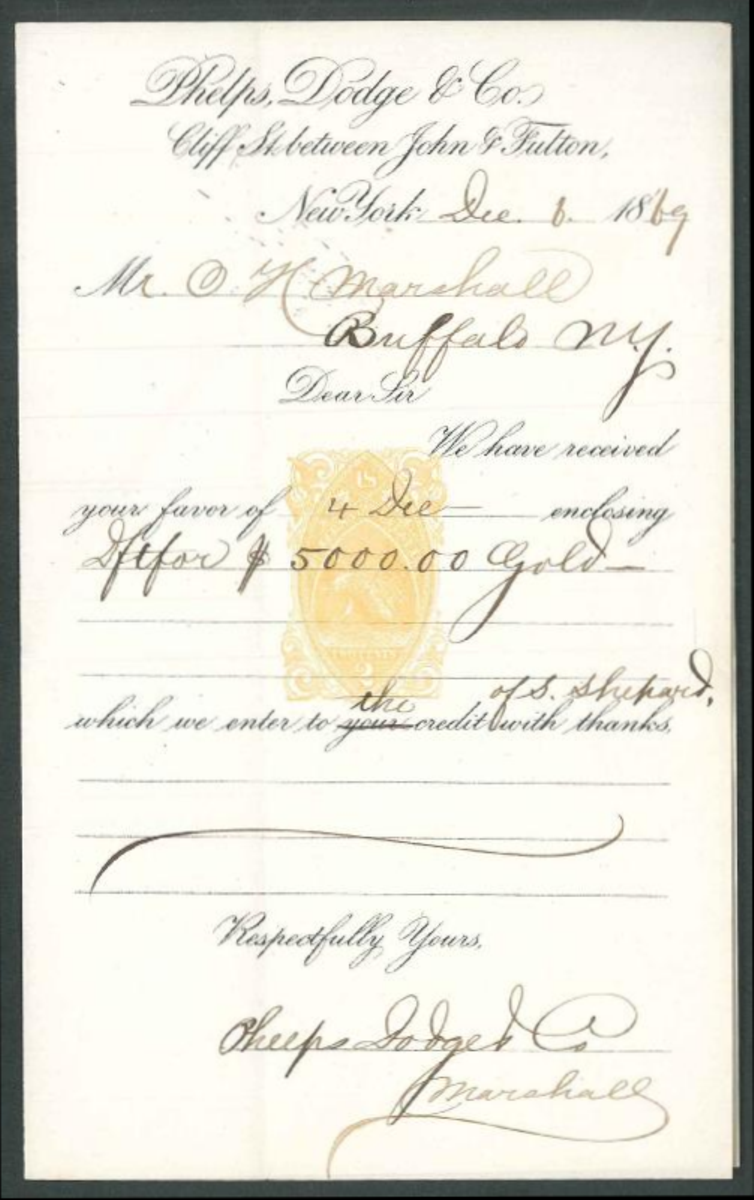 Phelps, Dodge & Co.
Cliff St. between John & Fulton,
New York Dec. 6. 1869
Mr. O H Marshall
Buffalo N.Y.
Dear Sir
We have received
your favor of 4 Dec — enclosing
Dft for $ 5000.00 Gold —
the of S. Shepard,
which we enter to your credit with thanks,
Respectfully Yours,
Phelps Dodge & Co
Marshall